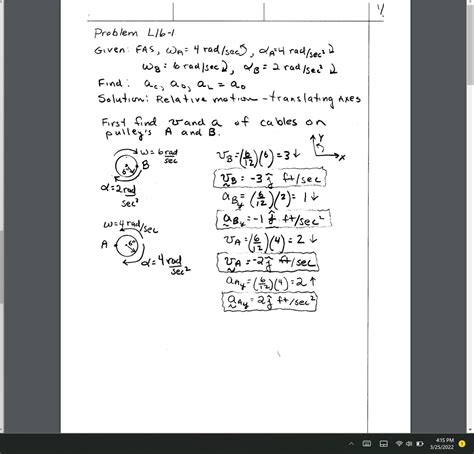 1/
Problem L16-1
Given: FAS, ωA = 4 rad/sec ↺, αA = 4 rad/sec² ↻
ωB = 6 rad/sec ↻, αB = 2 rad/sec² ↻
Find: aC, aD, aL = aD
Solution: Relative motion - translating axes
First find v and a of cables on
pulley's A and B.
ω = 6 rad/sec
6"
B
α = 2 rad/sec²
Y
x
vB = (6/12)(6) = 3 ↓
vB = -3 ĵ ft/sec
aBy = (6/12)(2) = 1 ↓
aBy = -1 ĵ ft/sec²
ω = 4 rad/sec
A
6"
α = 4 rad/sec²
vA = (6/12)(4) = 2 ↓
vA = -2 ĵ ft/sec
aAy = (6/12)(4) = 2 ↑
aAy = 2 ĵ ft/sec²
4:15 PM
3/25/2022